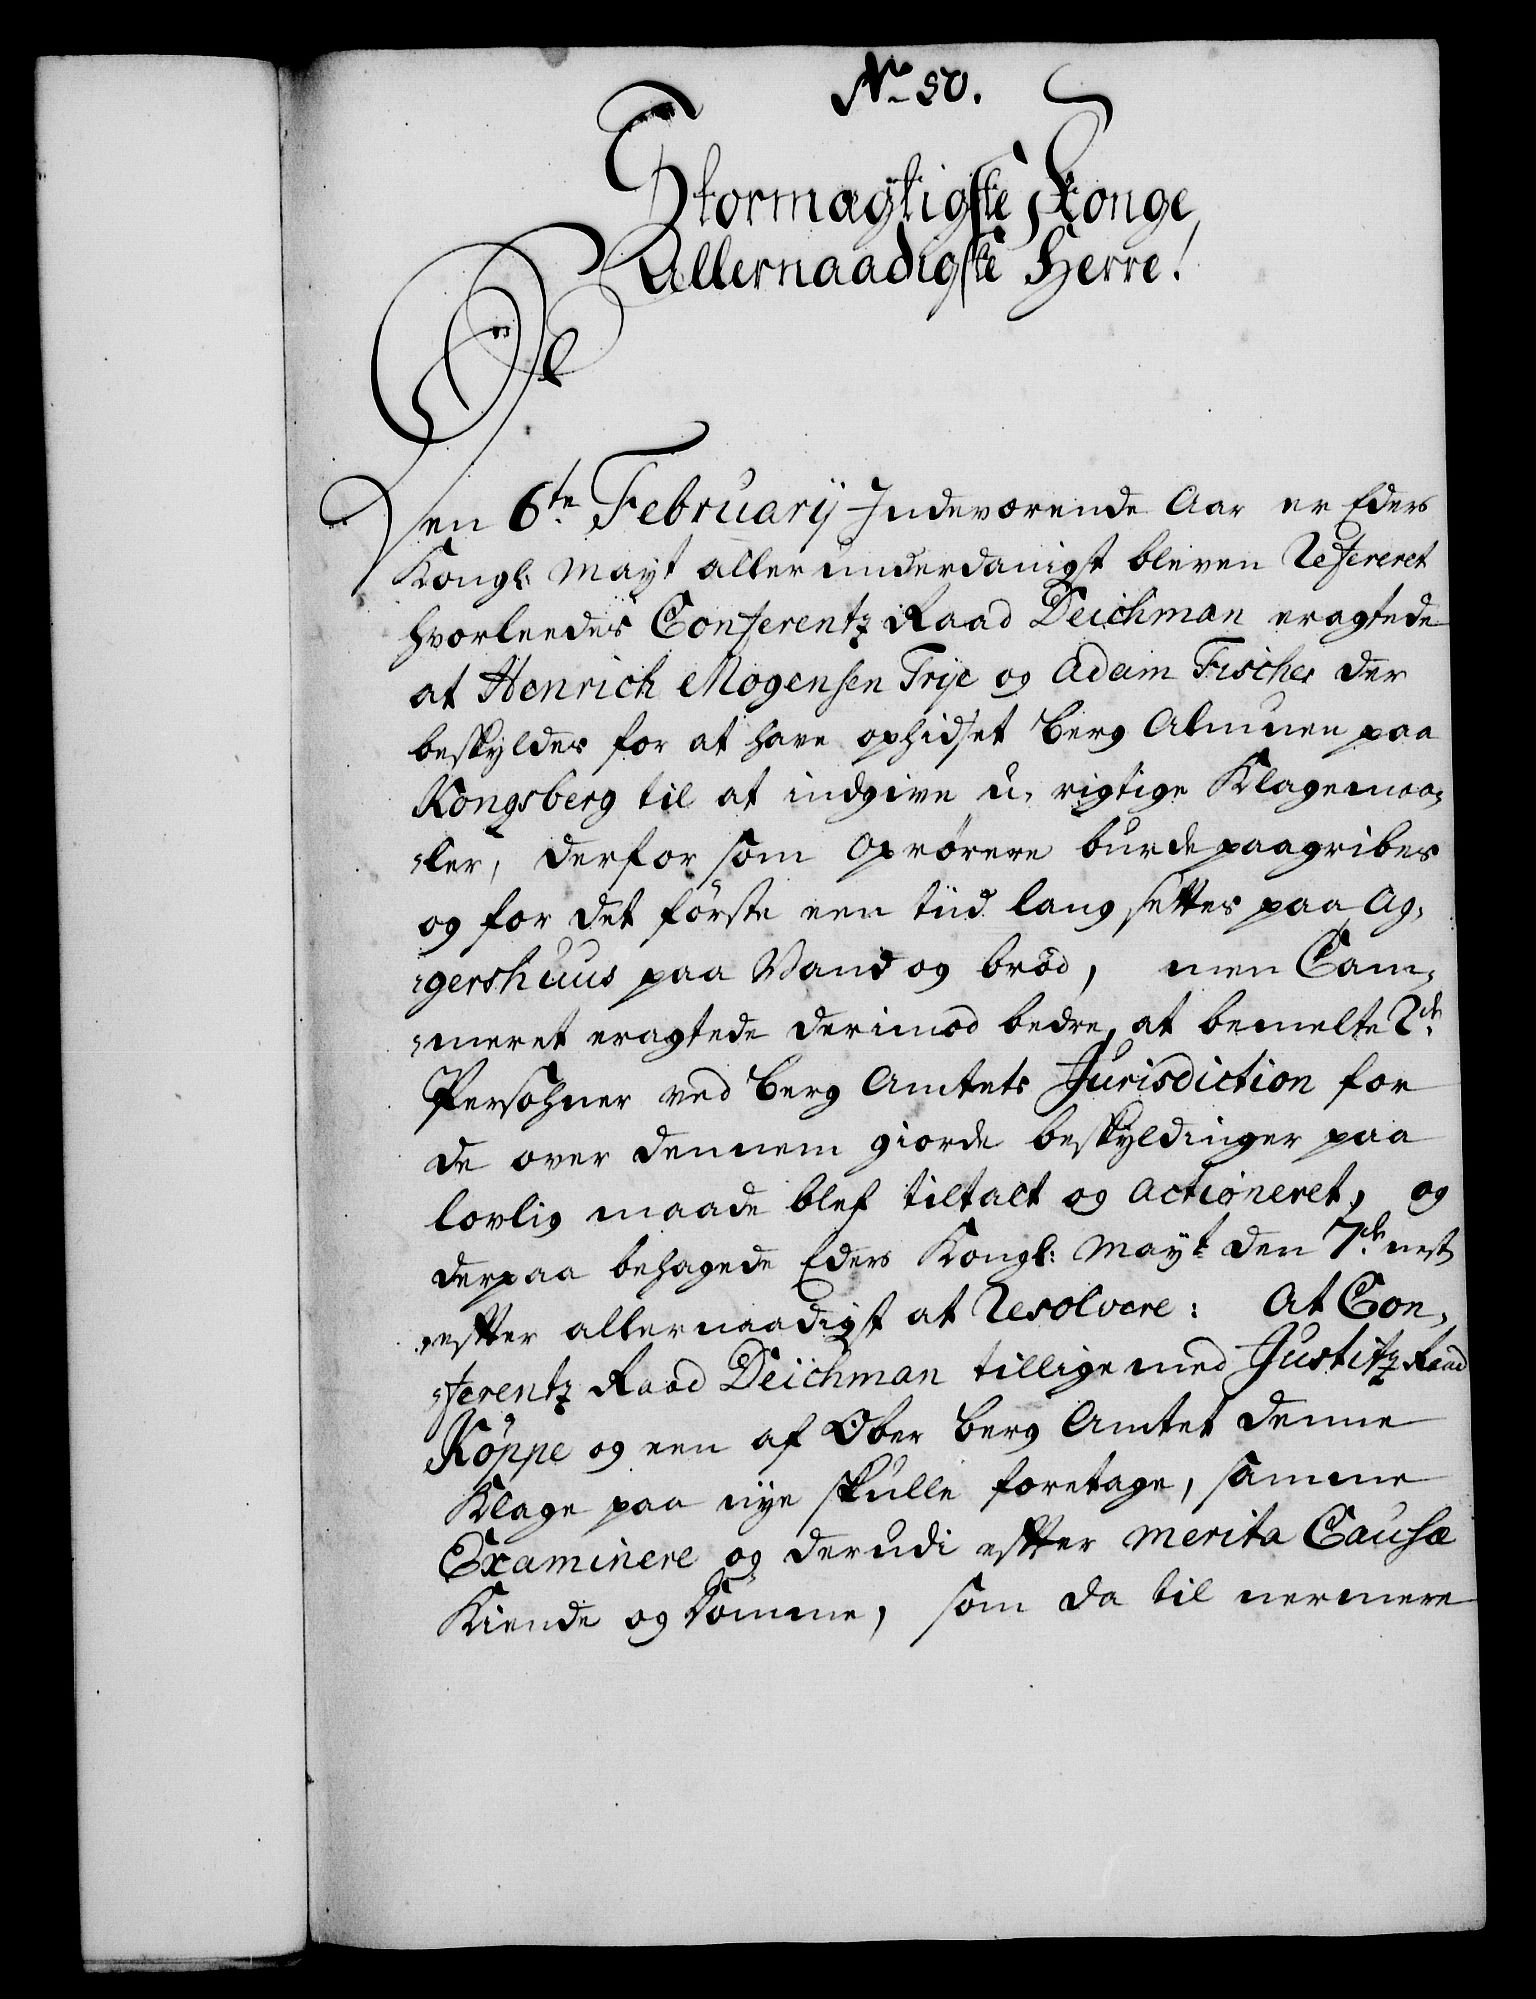 No 50.
Stormægtigste Konge,
Allernaadigste Herre!
Den 6te February Indeværende Aar er Eders
Kongl: Mayt allerunderdanigst bleven Refereret
hvorleedes Conferentz Raad Deichman eragtede
at Henrich Mogensen Trye og Adam Fischer der
beskyldes for at have ophidset Berg Almuen paa
Kongsberg til at indgive u-rigtige Klagemaa-
-ler, derfor som oprørere burde paagribes
og for det første een tiid lang settes paa Ag-
-gershuus paa Vand og brød, men Cam-
-meret eragtede derimod bedre, at bemelte 2de
Persohner ved Berg Amtets Jurisdiction for
de over dennem giorde beskyldinger paa
lovlig maade blef tiltalt og actioneret, og
derpaa behagede Eders Kongl: Mayt den 7de nest
-efter allernaadigst at Resolvere: At Con-
-ferentz Raad Deichman tillige med Justitz Raad
Köppe og een af Ober Berg Amtet denne
Klage paa nye skulle foretage, samme
Examinere og derudi efter merita Causæ
Kiende og Dømme, som da til nermere